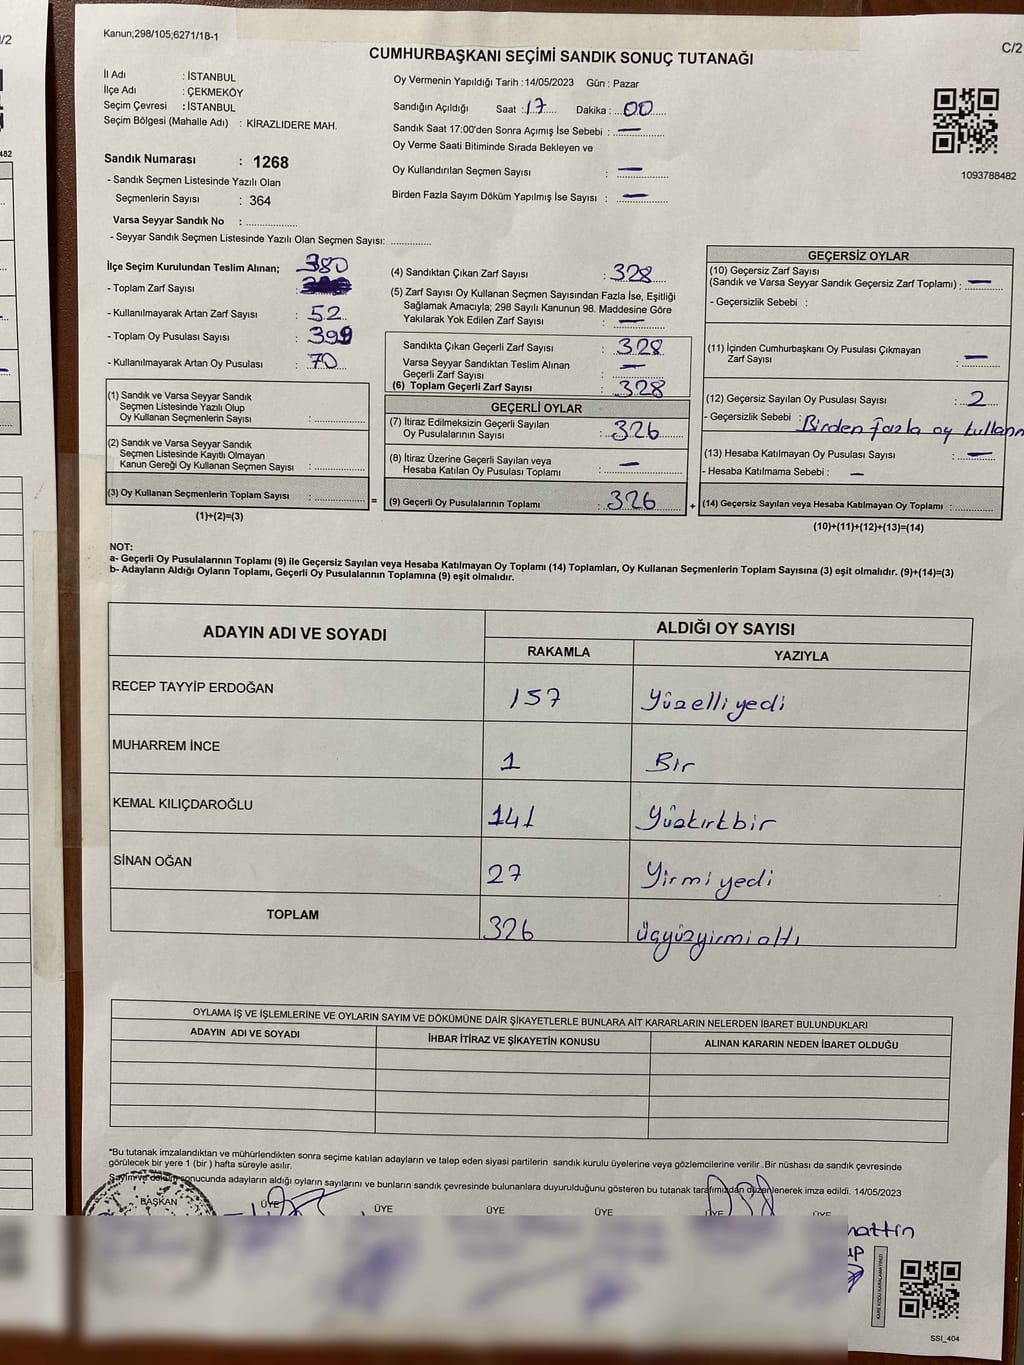 Kanun;298/105;6271/18-1
C/2
CUMHURBAŞKANI SEÇİMİ SANDIK SONUÇ TUTANAĞI
İl Adı : İSTANBUL
İlçe Adı : ÇEKMEKÖY
Seçim Çevresi : İSTANBUL
Seçim Bölgesi (Mahalle Adı) : KİRAZLIDERE MAH.
Sandık Numarası : 1268
- Sandık Seçmen Listesinde Yazılı Olan
Seçmenlerin Sayısı : 364
Varsa Seyyar Sandık No : ................
- Seyyar Sandık Seçmen Listesinde Yazılı Olan Seçmen Sayısı: .............
Oy Vermenin Yapıldığı Tarih : 14/05/2023 Gün : Pazar
Sandığın Açıldığı Saat : 17 Dakika : 00
Sandık Saat 17:00'den Sonra Açımış İse Sebebi : —
Oy Verme Saati Bitiminde Sırada Bekleyen ve
Oy Kullandırılan Seçmen Sayısı : —
Birden Fazla Sayım Döküm Yapılmış İse Sayısı : —
1093788482
İlçe Seçim Kurulundan Teslim Alınan; 380
- Toplam Zarf Sayısı :
- Kullanılmayarak Artan Zarf Sayısı : 52
- Toplam Oy Pusulası Sayısı : 399
- Kullanılmayarak Artan Oy Pusulası : 70
(1) Sandık ve Varsa Seyyar Sandık
Seçmen Listesinde Yazılı Olup
Oy Kullanan Seçmenlerin Sayısı : ................
(2) Sandık ve Varsa Seyyar Sandık
Seçmen Listesinde Kayıtlı Olmayan
Kanun Gereği Oy Kullanan Seçmen Sayısı : ................
(3) Oy Kullanan Seçmenlerin Toplam Sayısı : ................ =
(1)+(2)=(3)
(4) Sandıktan Çıkan Zarf Sayısı : 328
(5) Zarf Sayısı Oy Kullanan Seçmen Sayısından Fazla İse, Eşitliği
Sağlamak Amacıyla; 298 Sayılı Kanunun 98. Maddesine Göre
Yakılarak Yok Edilen Zarf Sayısı : —
Sandıkta Çıkan Geçerli Zarf Sayısı : 328
Varsa Seyyar Sandıktan Teslim Alınan
Geçerli Zarf Sayısı : —
(6) Toplam Geçerli Zarf Sayısı : 328
GEÇERLİ OYLAR
(7) İtiraz Edilmeksizin Geçerli Sayılan
Oy Pusulalarının Sayısı : 326
(8) İtiraz Üzerine Geçerli Sayılan veya
Hesaba Katılan Oy Pusulası Toplamı : —
(9) Geçerli Oy Pusulalarının Toplamı : 326 +
GEÇERSİZ OYLAR
(10) Geçersiz Zarf Sayısı
(Sandık ve Varsa Seyyar Sandık Geçersiz Zarf Toplamı) : —
- Geçersizlik Sebebi :
(11) İçinden Cumhurbaşkanı Oy Pusulası Çıkmayan
Zarf Sayısı : —
(12) Geçersiz Sayılan Oy Pusulası Sayısı : 2
- Geçersizlik Sebebi : Birden fazla oy kullanm
(13) Hesaba Katılmayan Oy Pusulası Sayısı : —
- Hesaba Katılmama Sebebi : —
(14) Geçersiz Sayılan veya Hesaba Katılmayan Oy Toplamı : ............
(10)+(11)+(12)+(13)=(14)
NOT:
a- Geçerli Oy Pusulalarının Toplamı (9) ile Geçersiz Sayılan veya Hesaba Katılmayan Oy Toplamı (14) Toplamları, Oy Kullanan Seçmenlerin Toplam Sayısına (3) eşit olmalıdır. (9)+(14)=(3)
b- Adayların Aldığı Oyların Toplamı, Geçerli Oy Pusulalarının Toplamına (9) eşit olmalıdır.
ADAYIN ADI VE SOYADI ALDIĞI OY SAYISI
RAKAMLA YAZIYLA
RECEP TAYYİP ERDOĞAN 157 Yüzelli yedi
MUHARREM İNCE 1 Bir
KEMAL KILIÇDAROĞLU 141 Yüzkırkbir
SİNAN OĞAN 27 Yirmi yedi
TOPLAM 326 üçyüzyirmialtı
OYLAMA İŞ VE İŞLEMLERİNE VE OYLARIN SAYIM VE DÖKÜMÜNE DAİR ŞİKAYETLERLE BUNLARA AİT KARARLARIN NELERDEN İBARET BULUNDUKLARI
ADAYIN ADI VE SOYADI İHBAR İTİRAZ VE ŞİKAYETİN KONUSU ALINAN KARARIN NEDEN İBARET OLDUĞU
*Bu tutanak imzalandıktan ve mühürlendikten sonra seçime katılan adayların ve talep eden siyasi partilerin sandık kurulu üyelerine veya gözlemcilerine verilir .Bir nüshası da sandık çevresinde
görülecek bir yere 1 (bir ) hafta süreyle asılır.
Sayım ve döküm sonucunda adayların aldığı oyların sayılarını ve bunların sandık çevresinde bulunanlara duyurulduğunu gösteren bu tutanak tarafımızdan düzenlenerek imza edildi. 14/05/2023
BAŞKAN ÜYE ÜYE ÜYE ÜYE ÜYE ÜYE
SSI_404